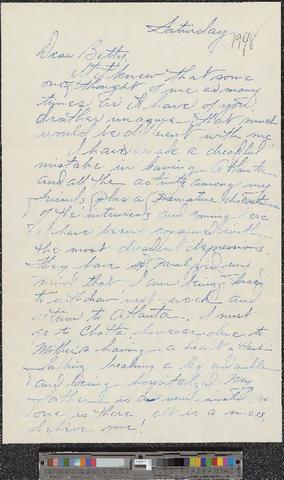 Saturday
1948
Dear Betty,
If I knew that some
one thought of me as many
times as I have of you
drather unaque. that much
would be different with me.
I have made a dreadful
mistake in leaving Atlanta
and all the activity among my
friends plus a
of the interests and coming here
I have been consumed with
the most dreadful depressions
they have so paralyzed my
mind that I am being
to withdraw next week and
return to Atlanta. I must
go to Chatta. however due to
Mother's having a heart attack
falling breaking a leg in
and being hospitalized. My
father is a semi invalid no
one is there. It is a mess,
believe me!